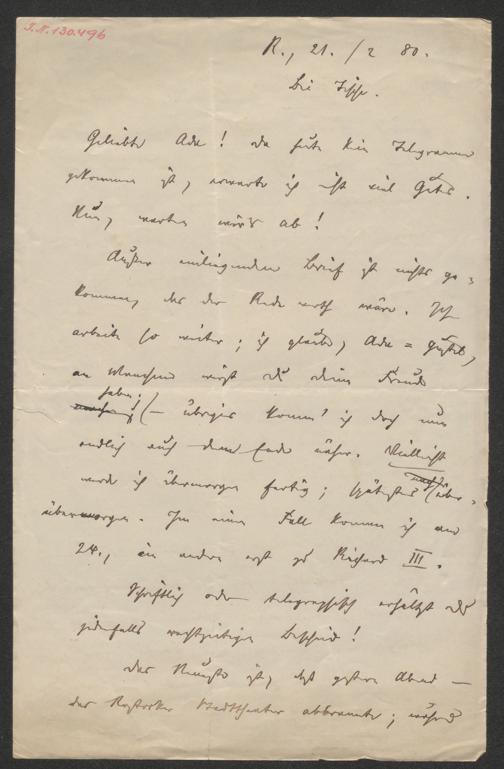 J.N. 130.496
R., 21./2 80.
bei Tische.
Geliebte Ada! da heute kein Telegramm
gekommen ist, erwarte ich nicht viel Gutes.
Nun, warten wir's ab!
Außer einliegendem Brief ist nichts ge-
kommen, das der Rede werth wäre. Ich
arbeite so weiter; ich glaube, Ada =
an Manchem wirst du deine Freude
haben; (– übrigens komm' ich doch nun
endlich auch dem Ende näher. Vielleicht
werde ich übermorgen fertig; spätestens (über-
übermorgen. Im einen Fall komme ich am
24., im andern erst zu Richard III.
Schriftlich oder telegraphisch erhältst du
jedenfalls rechtzeitigen Bescheid!
Das Neueste ist, daß gestern Abend —
das Rostocker Stadttheater abbrannte; während